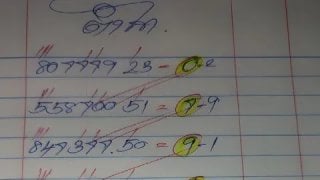 807779 23 = 0-2
558700 51 = 7-9
847377.50 = 9-1